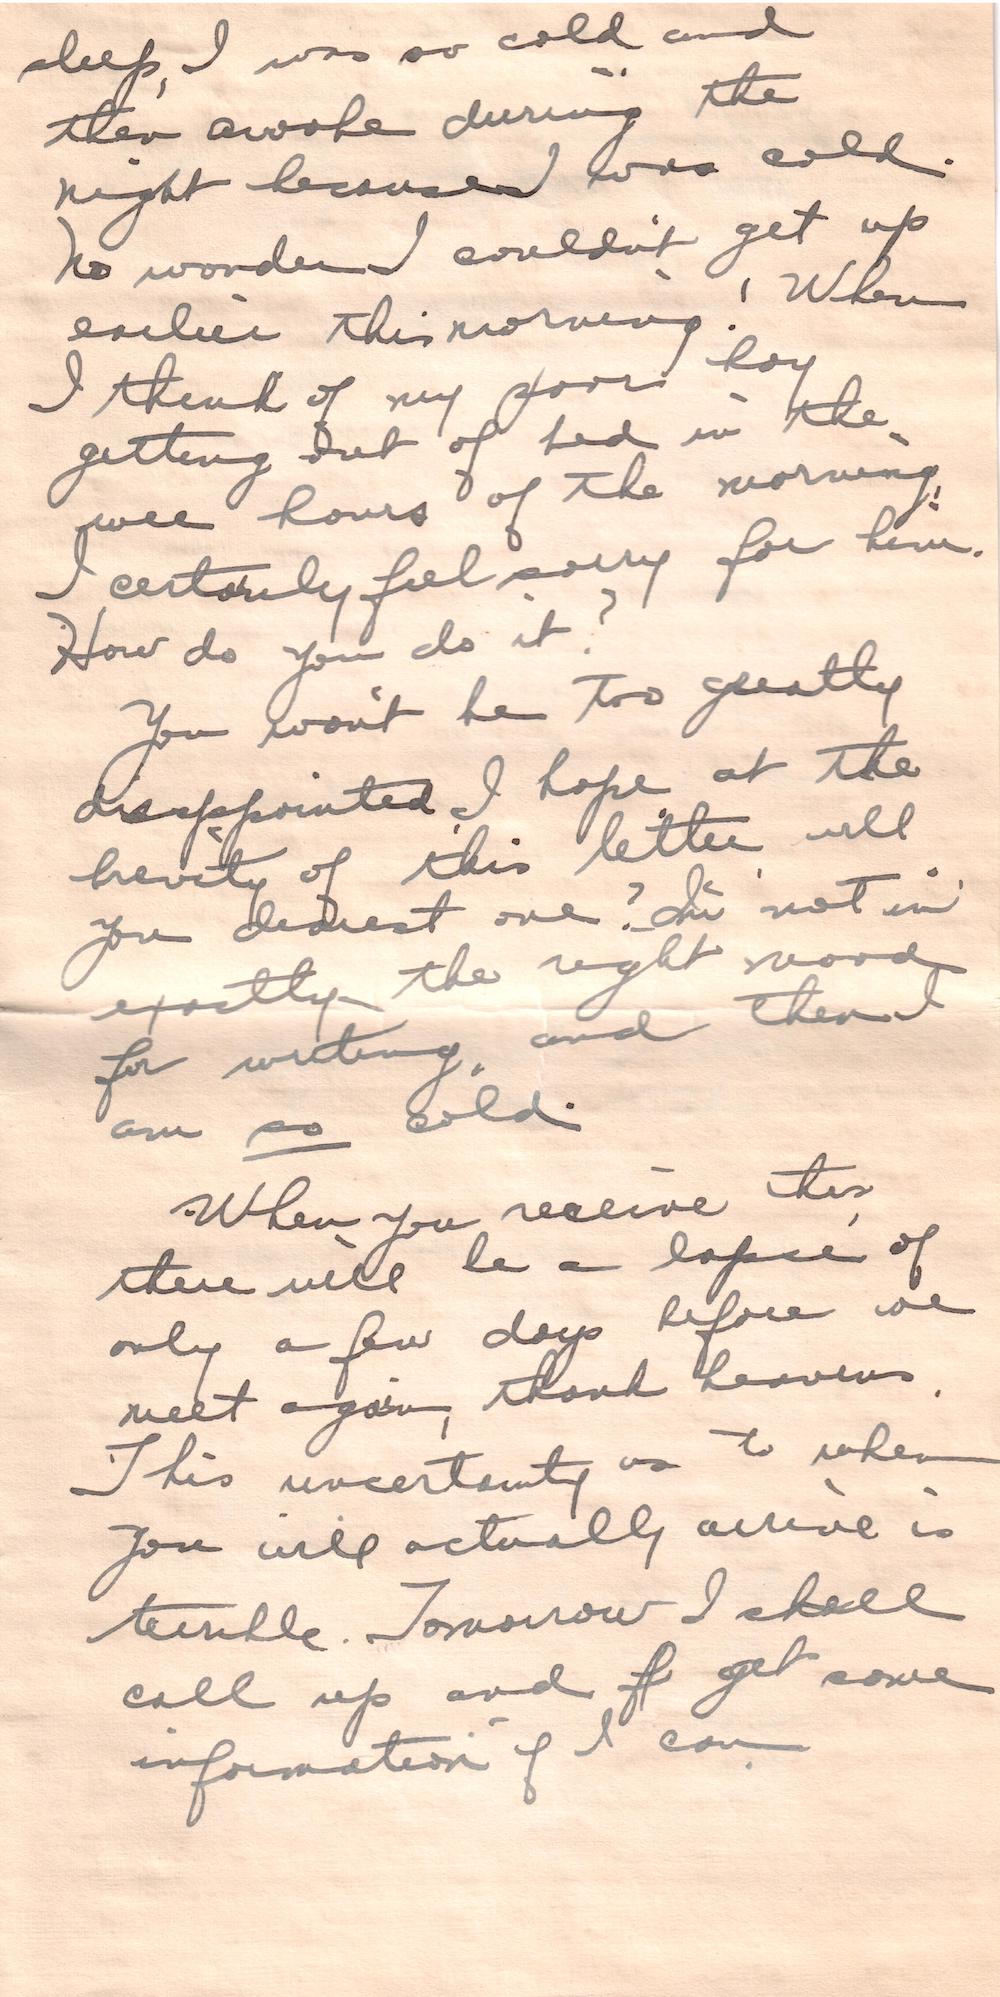 sleep, I was so cold and
then awoke during the
night because I was cold.
No wonder I couldn't get up
earlier this morning! When
I think of my poor boy
getting out of bed in the
wee hours of the morning,
I certainly feel sorry for him.
How do you do it?
You won't be too greatly
disappointed, I hope at the
brevity of this letter will
you dearest one? I'm not in
exactly the right mood
for writing, and then I
am so cold.
When you receive this,
there will be a lapse of
only a few days before we
meet again, thank heavens.
This uncertainty as to when
you will actually arrive is
terrible. Tomorrow I shall
call up and get some
information if I can.